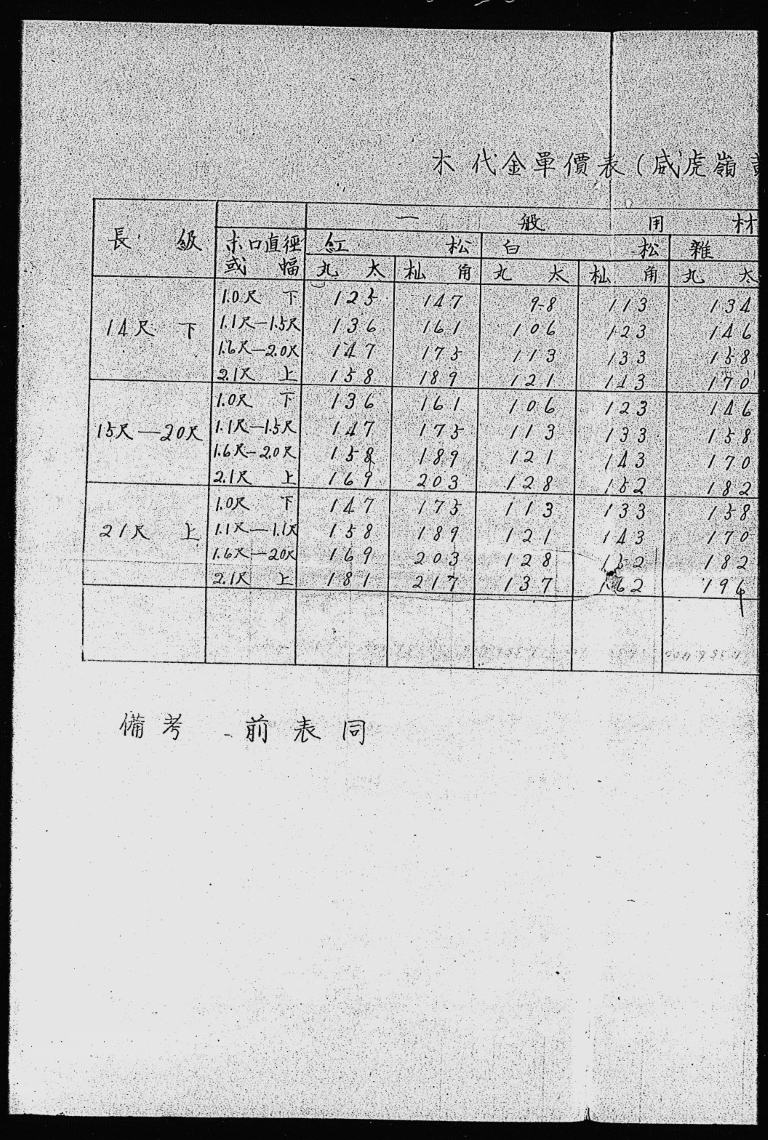 木代金單價表(威虎嶺
一般用材
長級 木口直徑 紅松 白松 雜
或幅 丸太 杣角 丸太 杣角 丸太
1.0尺下 125 147 98 113 134
14尺下 1.1尺—1.5尺 136 161 106 123 146
1.6尺—2.0尺 147 175 113 133 158
2.1尺上 158 189 121 143 170
1.0尺下 136 161 106 123 146
15尺—20尺 1.1尺—1.5尺 147 175 113 133 158
1.6尺—2.0尺 158 189 121 143 170
2.1尺上 169 203 128 152 182
1.0尺下 147 175 113 133 158
21尺上 1.1尺—1.1尺 158 189 121 143 170
1.6尺—20尺 169 203 128 152 182
2.1尺上 181 217 137 162 196
備考 前表同